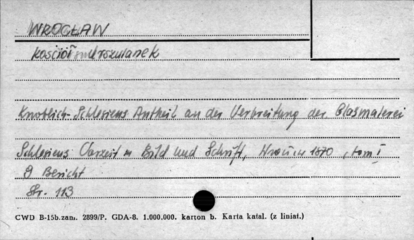 WROCŁAW
Kościół Urszulanek
Knoblich Schlesiens Antheil an der Verbreitung der Glasmalerei
Schlesiens Vorzeit in Bild und Schrift, 1870, tom I
9 Bericht
Str. 113
CWD B-15b. zam. 2899/P. GDA-8. 1.000.000. karton b. Karta katal. (z liniat.)